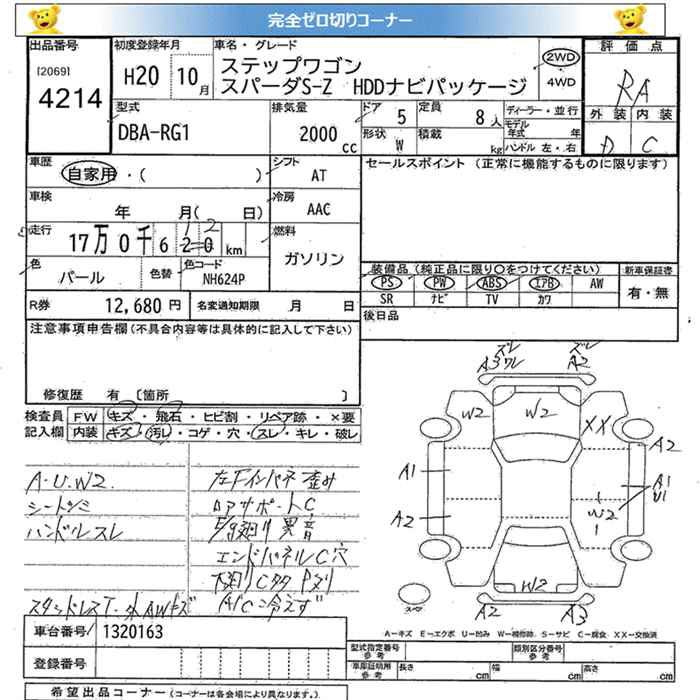 完全ゼロ切りコーナー
出品番号
[2069]
4214
初度登録年月
H20 10月
車名・グレード
ステップワゴン
スパーダS-Z HDDナビパッケージ
2WD
4WD
評価点
RA
外装 内装
D C
型式
DBA-RG1
排気量
2000 cc
ドア 5
定員 8人
形状 W
積載 kg
ディーラー・並行
モデル年式 年
ハンドル 左・右
車歴
自家用・( )
シフト
AT
セールスポイント (正常に機能するものに限ります)
車検
年 月( 日)
冷房
AAC
走行
17万0千6 20 km
12
燃料
ガソリン
色
パール
色替
色コード
NH624P
装備品(純正品に限り○をつけてください)
新車保証書
PS PW ABS エアB AW
SR ナビ TV カワ
有・無
R券 12,680円
名変通知期限 月 日
後日品
注意事項申告欄(不具合内容等は具体的に記入して下さい)
修復歴 有 [箇所 ]
検査員記入欄
FW キズ・飛石・ヒビ割・リペア跡・×要
内装 キズ・汚レ・コゲ・穴・スレ・キレ・破レ
A・U・W2
シートシミ
ハンドルスレ
スタッドレスT・外AWキズ
左Fインパネ歪み
ロアサポートC
エンドパネルC穴
A/C冷えず
ズレ
ワレ
A3
ズレ
A2
W2
W2
XX
A2
A1
A1
U1
A2
W2
W2
A2
A3
スペア
A-キズ E-エクボ U-凹み W-補修跡 S-サビ C-腐食 XX-交換済
車台番号 1320163
登録番号
型式指定番号 参考
類別区分番号 参考
車庫証明用 参考
長さ cm
幅 cm
高さ cm
希望出品コーナー(コーナーは各会場により異なります。)